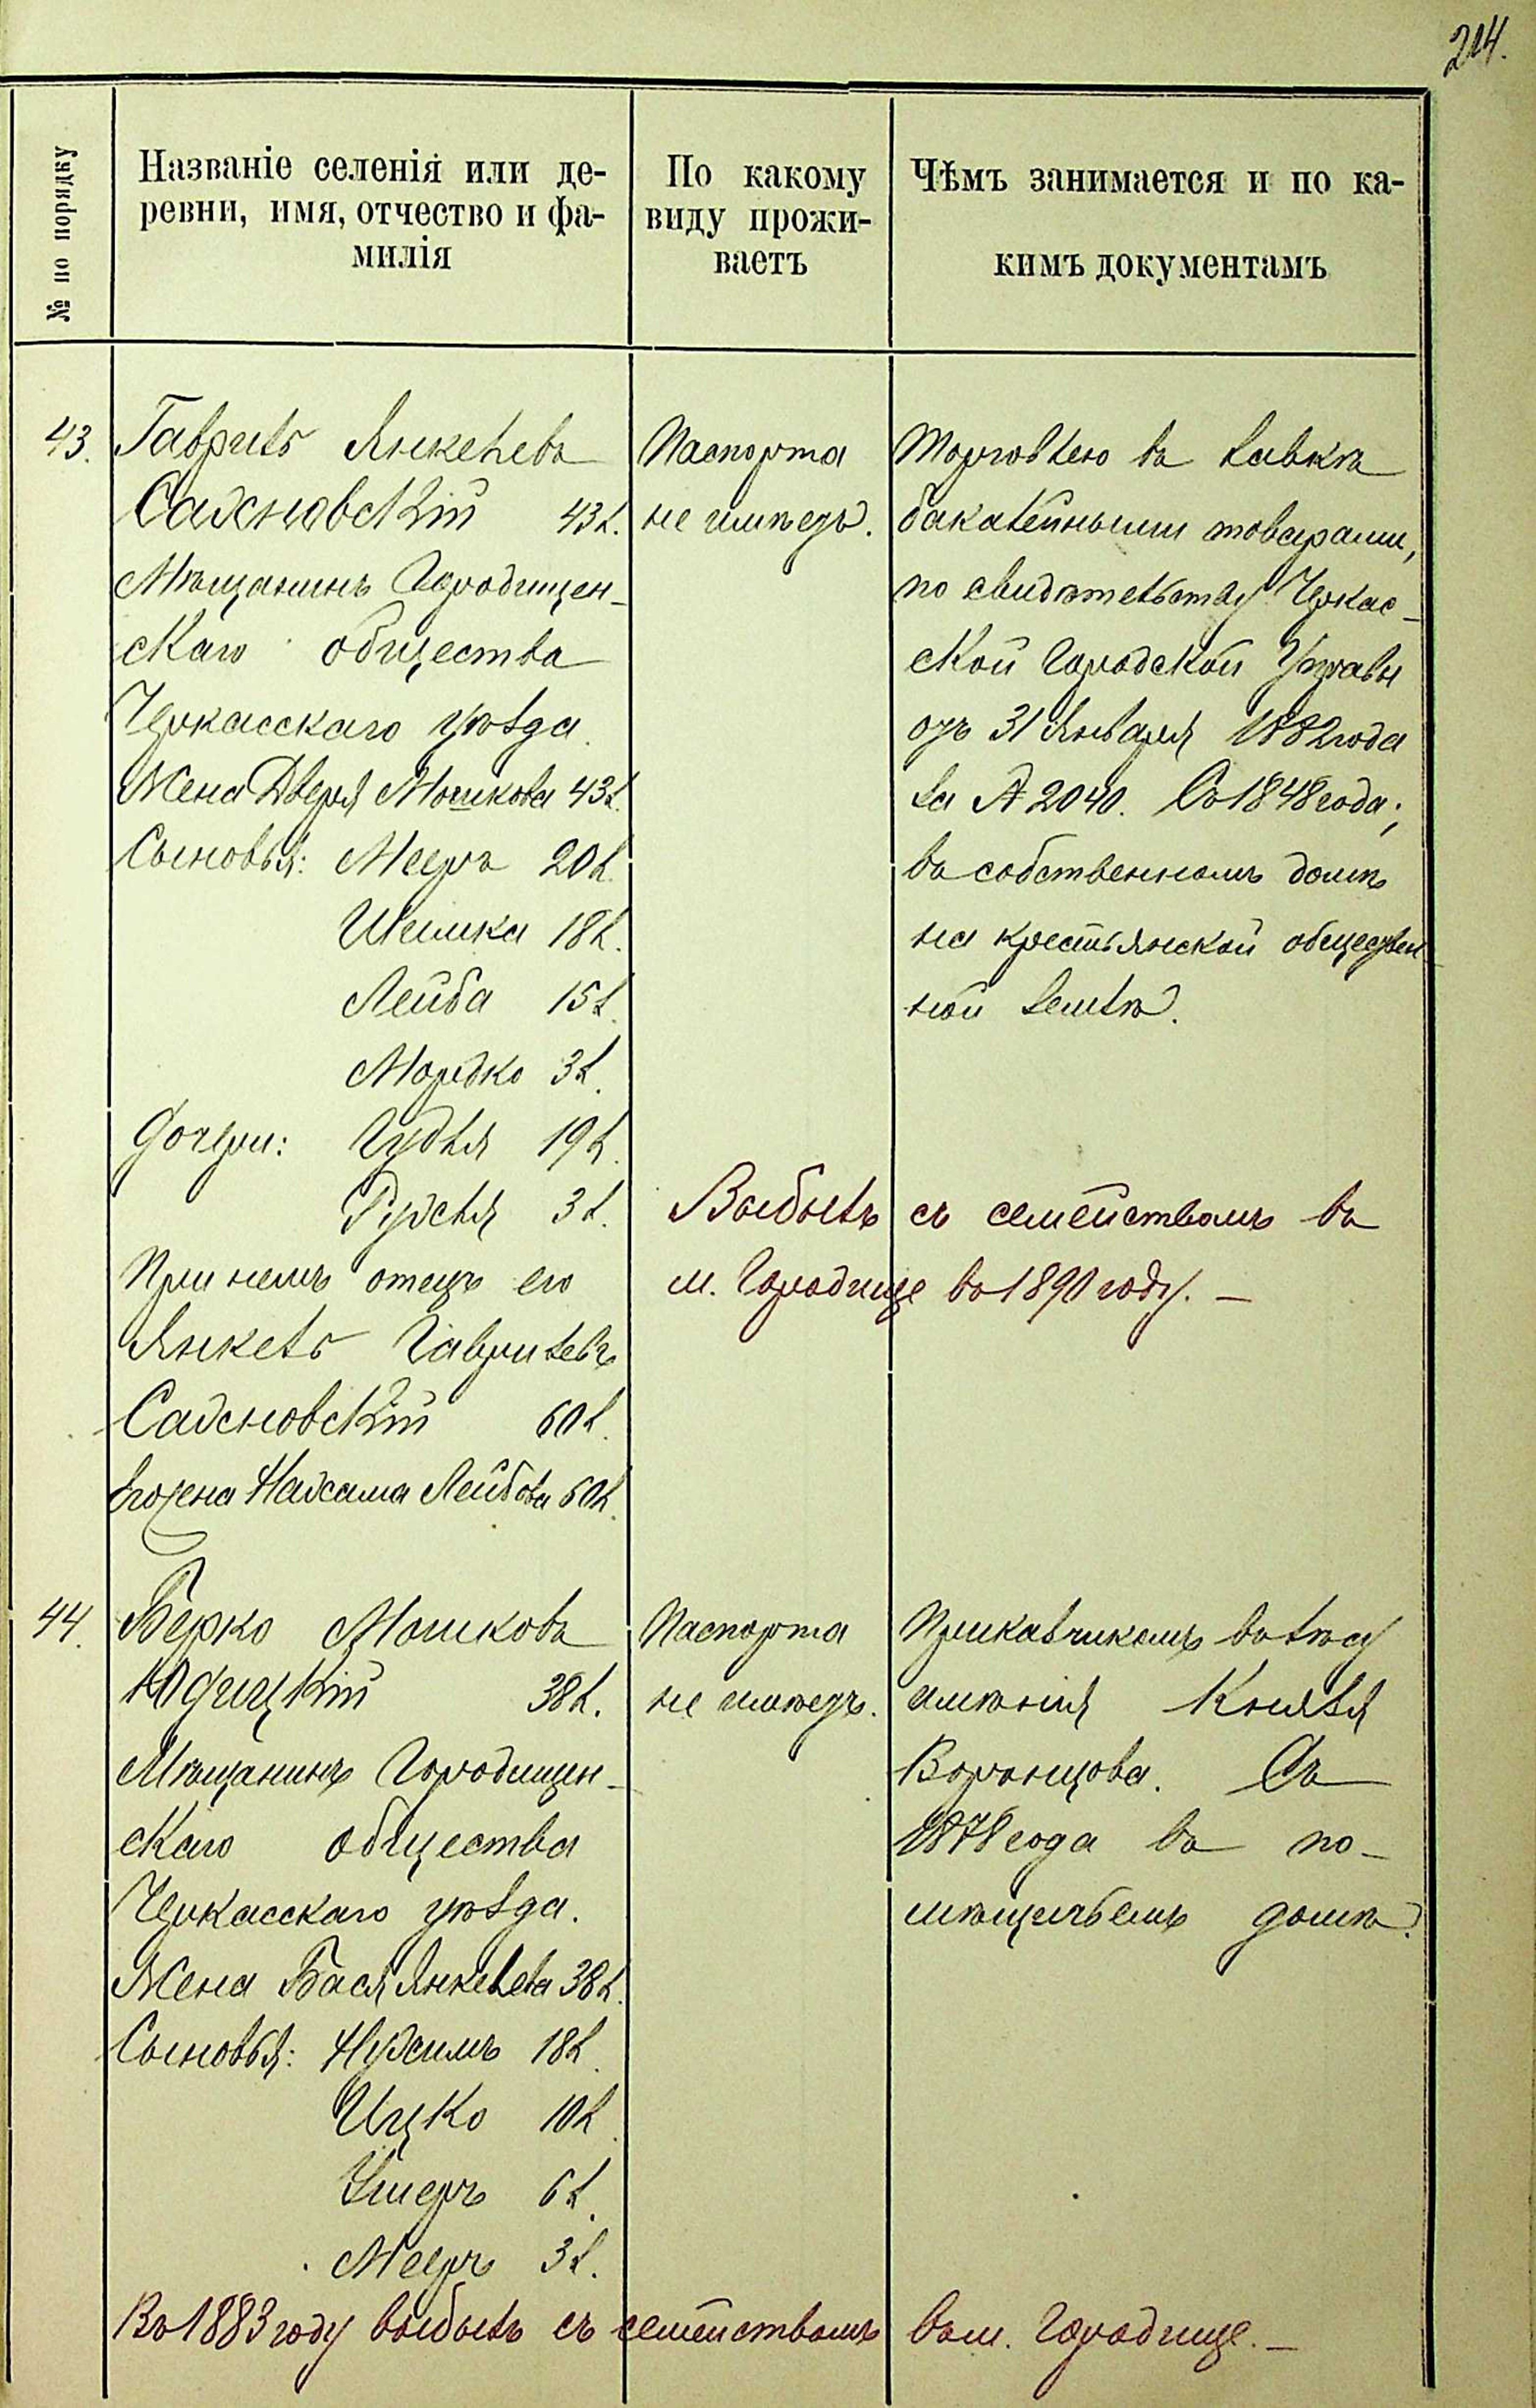 214.
№ по порядку
Названіе селенія или де-
ревни, имя, отчество и фа-
милія
По какому
виду прожи-
ваетъ
Чѣмъ занимается и по ка-
кимъ документамъ
43.
Гаврилъ Янкелевъ
Сахновскій 43 л.
Мѣщанинъ Городищен-
скаго общества
Черкасскаго уѣзда.
Жена Двейря Мошкова 43 л.
Сыновья: Мееръ 20 л.
Шлиомка 18 л.
Лейба 15 л.
Мордко 3 л.
Дочери: Гудля 19 л.
Рухля 3 л.
При немъ отецъ его
Янкель Гавриловъ
Сахновскій 60 л.
Его жена Нахама Лейбова 60 л.
Паспорта
не имѣетъ.
Торговлею въ лавкѣ
бакалейными товарами,
по свидѣтельству Черкас-
ской Городской Управы
отъ 31 Января 1882 года
за № 2040. Съ 1848 года;
въ собственномъ домѣ
на крестьянской обществен-
ной землѣ.
Выбылъ съ семействомъ въ
м. Городище въ 1890 году. —
44.
Берко Мошковъ
Юдицкій 38 л.
Мѣщанинъ Городищен-
скаго общества
Черкасскаго уѣзда.
Жена Бася Янкелева 38 л.
Сыновья: Нухимъ 18 л.
Ицко 10 л.
Ушеръ 6 л.
Мееръ 3 л.
Паспорта
не имѣетъ.
Прикащикомъ въ лѣсу
имѣнія Князя
Воронцова. Съ
1878 года въ по-
мѣщичьемъ домѣ.
Въ 1883 году выбылъ съ семействомъ въ м. Городище. —